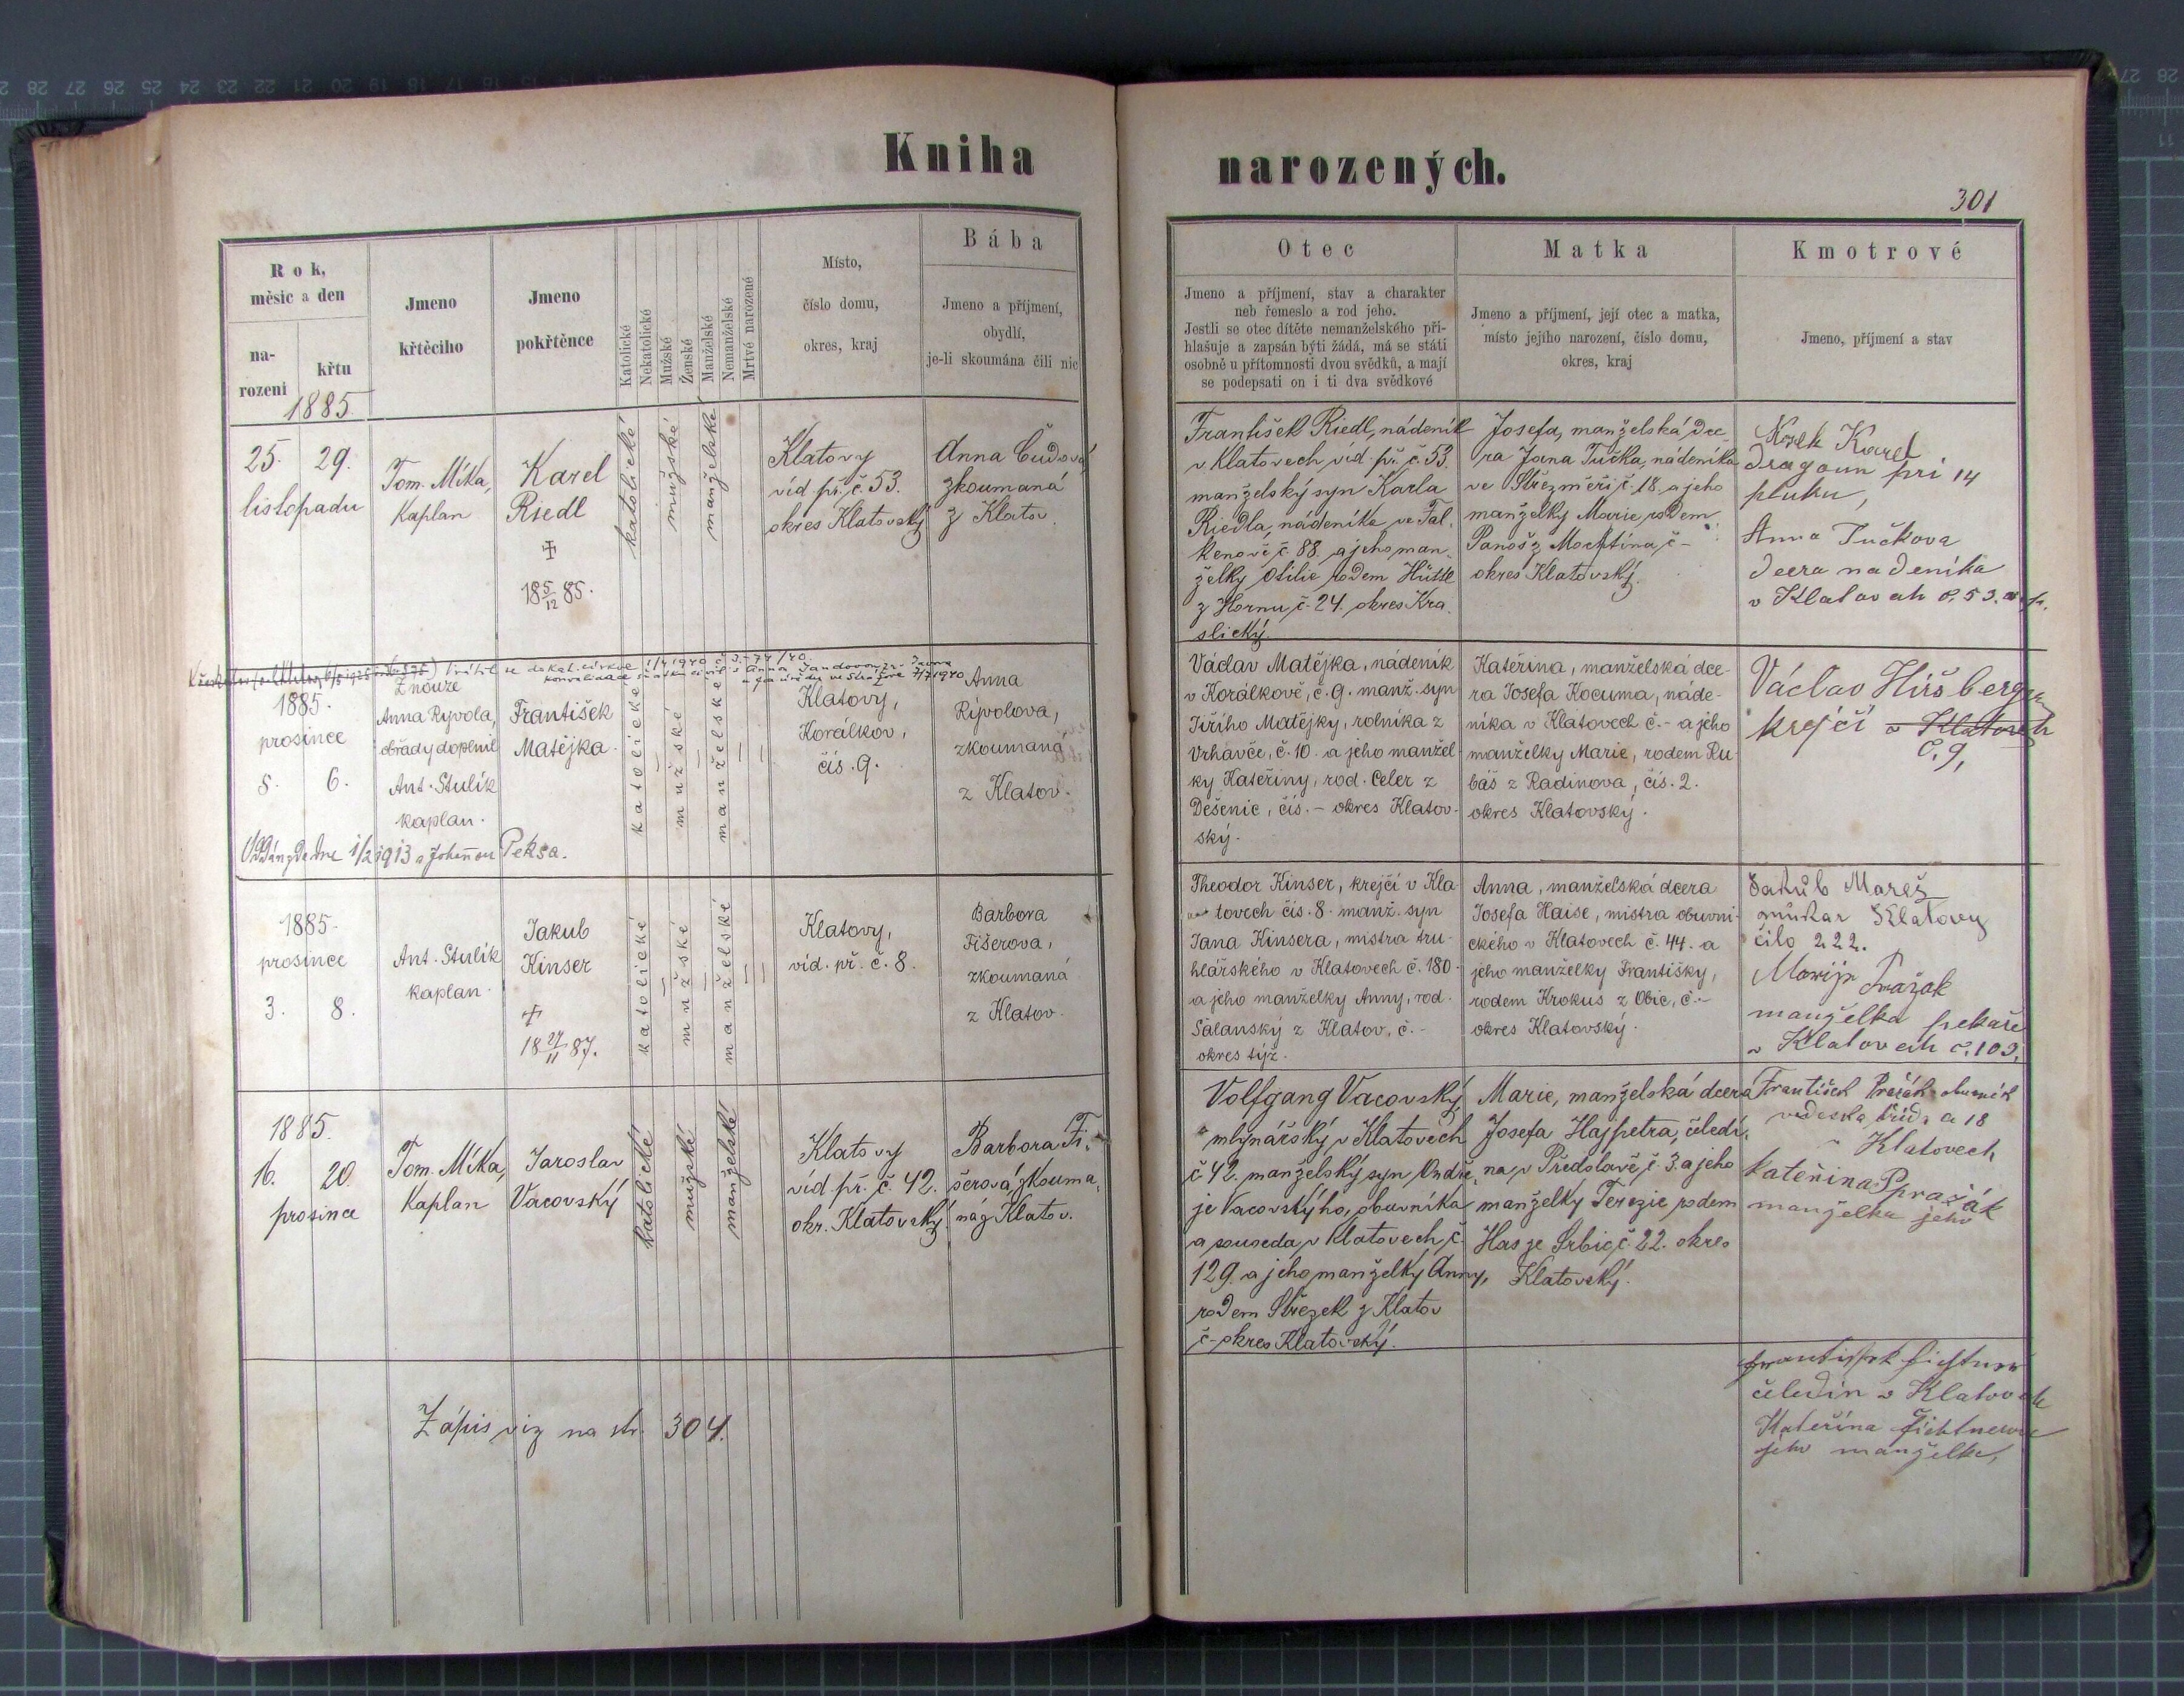 Kniha
narozených.
301
Rok,
měsíc a den
na-
rození
křtu
Jmeno
křtěcího
Jmeno
pokřtěnce
Katolické
Nekatolické
Mužské
Ženské
Manželské
Nemanželské
Mrtvé narozené
Místo,
číslo domu,
okres, kraj
Bába
Jmeno a příjmení,
obydlí,
je-li skoumána čili nic
Otec
Jmeno a příjmení, stav a charakter
neb řemeslo a rod jeho.
Jestli se otec dítěte nemanželského při-
hlašuje a zapsán býti žádá, má se státi
osobně u přítomnosti dvou svědků, a mají
se podepsati on i ti dva svědkové
Matka
Jmeno a příjmení, její otec a matka,
místo jejího narození, číslo domu,
okres, kraj
Kmotrové
Jmeno, příjmení a stav
1885
25. 29.
listopadu
Tom. Míka,
Kaplan
Karel
Riedl
✝
18 5/12 85.
katolické
mužské
manželské
Klatovy
víd. př. č. 53.
okres Klatovský
Anna Čudová
zkoumaná
z Klatov.
František Riedl, nádeník
v Klatovech víd. př. č. 53.
manželský syn Karla
Riedla, nádeníka ve Fal-
kenově č. 88. a jeho man-
želky Otilie rodem Hüttl
z Hornu č. 24. okres Kra-
slický.
Josefa, manželská dce-
ra Jana Tučka, nádeníka
ve Střezměři č. 18. a jeho
manželky Marie rodem
Panoš z Mochtína č -
okres Klatovský.
Karel
dragoun při 14
pluku,
Anna Tučkova
dcera nadeníka
v Klatovah č. 53.
vrátil se do kat. církve 1/4 1940 č. j. - 74/40.
Anna
1885.
prosince
5. 6.
Z nouze
Anna Ryvola,
obřady doplnil
Ant. Stulík
kaplan.
František
Matějka.
katolické
mužské
manželské
Klatovy,
Korálkov,
čís. 9.
Anna
Rývolova,
zkoumaná
z Klatov.
Oddán zde dne 1/2 1913 s Johannou Peksa.
Václav Matějka, nádeník
v Korálkově, č. 9. manž. syn
Jiřího Matějky, rolníka z
Vrhavče, č. 10. a jeho manžel-
ky Kateřiny, rod. Celer z
Dešenic, čís. - okres Klatov-
ský.
Kateřina, manželská dce-
ra Josefa Kocuma, náde-
níka v Klatovech č. - a jeho
manželky Marie, rodem Ru-
báš z Radinova, čís. 2.
okres Klatovský.
Václav Hiršberger
krejčí v Klatovech
č. 9,
1885.
prosince
3. 8.
Ant. Stulík
kaplan.
Jakub
Kinser
✝
18 27/11 87.
katolické
mužské
manželské
Klatovy,
víd. př. č. 8.
Barbora
Fišerova,
zkoumaná
z Klatov.
Theodor Kinser, krejčí v Kla-
tovech čís. 8. manž. syn
Jana Kinsera, mistra tru-
hlářského v Klatovech č. 180.
a jeho manželky Anny, rod.
Šalanský z Klatov, č. -
okres týž.
Anna, manželská dcera
Josefa Haise, mistra obuvni-
ckého v Klatovech č. 44. a
jeho manželky Františky,
rodem Krokus z Obic, č. -
okres Klatovský.
Jakub Mareš
Klatovy
čilo 222.
Marije Pražak
manželka pekaře
v Klatovech č. 103,
1885.
16. 20.
prosince
Tom. Míka,
Kaplan
Jaroslav
Vacovský
katolické
mužské
manželské
Klatovy
víd. př. č. 42.
okr. Klatovský
Barbora Fi-
šerová, zkouma-
ná z Klatov.
Volfgang Vacovský,
mlynářský v Klatovech
č. 42. manželský syn Ondře-
je Vacovskýho, obuvníka
a souseda v Klatovech č.
129. a jeho manželky Anny,
rodem Střezek z Klatov
č - okres Klatovský.
Marie, manželská dcera
Josefa Hajpetra, čeledí-
na v Předslavě, č. 3. a jeho
manželky Terezie rodem
Has ze Srbic č. 22. okres
Klatovský.
František Pražák obuvník
18
Klatovech
Kateřina Pražák
manželka jeho
Zápis viz na str. 304.
František Fichtner
čeledín v Klatovech
Kateřina Fichtnerova
jeho manželka,